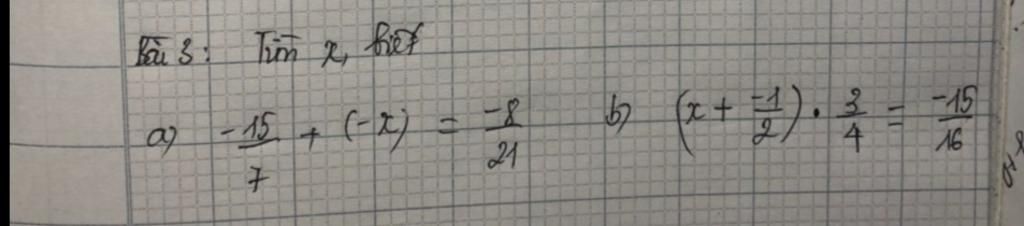 Bài 3: Tìm x, biết
a) -15/7 + (-x) = -8/21 b) (x + -1/2) . 3/4 = -15/16